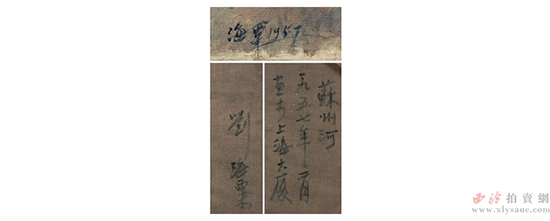 海粟1957
蘇州河
一九五七年二月
畫於上海大厦
劉海粟
西泠拍賣網
www.xlysauc.com